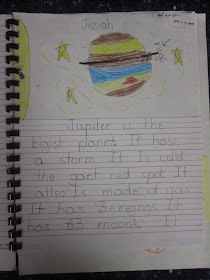 Josiah
Jupiter is the
bigist planet. It has
a storm It Is calld
the gant red spot. It
allso Is made of gas
It has 3 rings It
has 63 moons. It